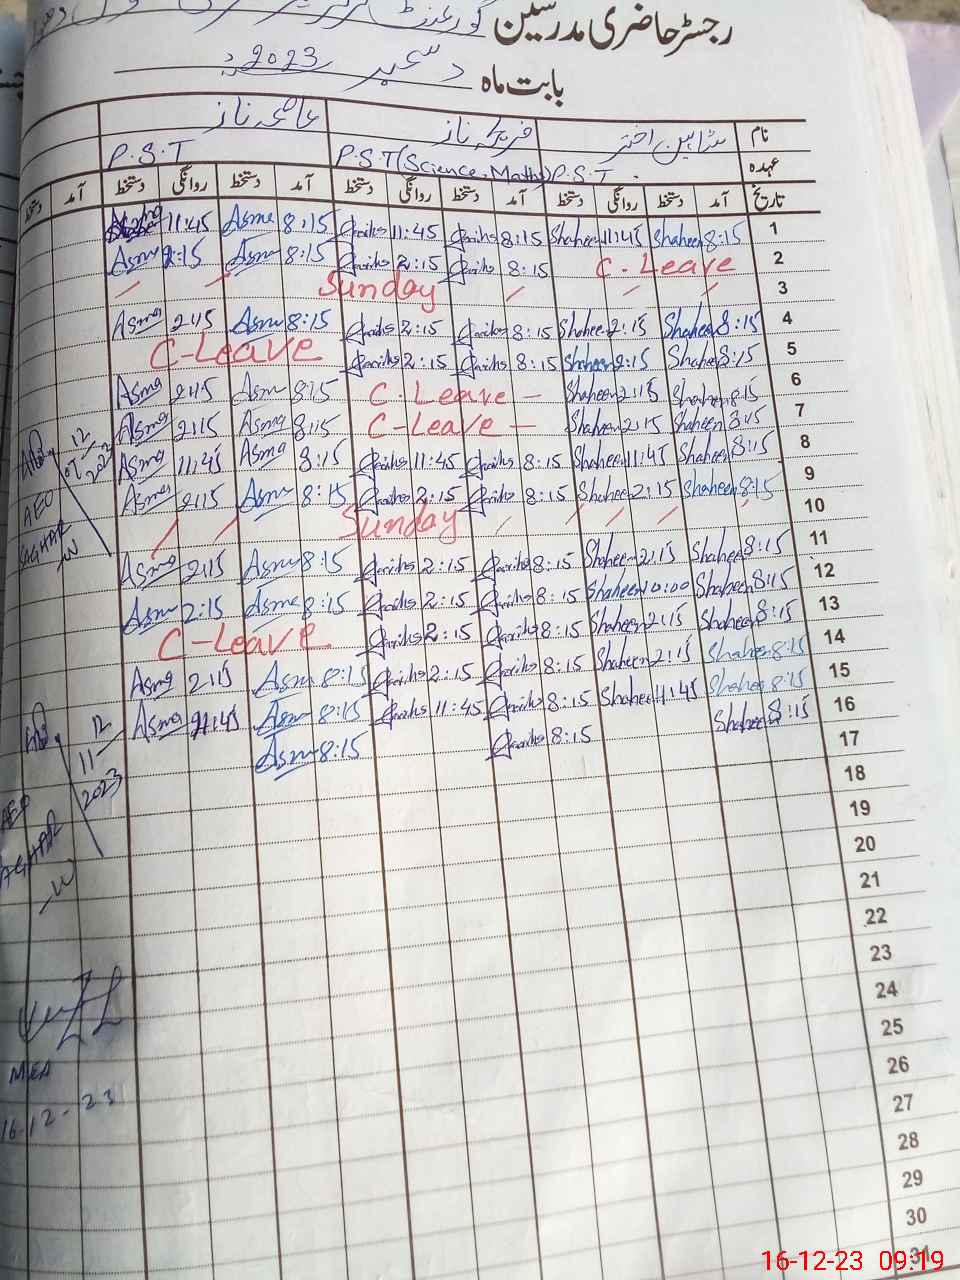 رجسٹر حاضری مدرسین گورنمنٹ
بابت ماہ دسمبر 2023ء
نام شاہین اختر ناز ناز
عہدہ P.S.T P.S.T (Science, Maths) P.S.T
تاریخ آمد دستخط روانگی دستخط آمد دستخط روانگی دستخط آمد دستخط روانگی دستخط آمد دستخط
1 8:15 Shaheen 11:45 Shaheen 8:15 11:45 8:15 Asma 11:45
2 C. Leave 8:15 2:15 8:15 Asma 2:15 Asma
3 Sunday
4 8:15 Shaheen 2:15 Shaheen 8:15 2:15 8:15 Asma 2:15 Asma
5 8:15 Shaheen 2:15 Shaheen 8:15 2:15 C-Leave
6 8:15 Shaheen 2:15 Shaheen C. Leave - 8:15 Asma 2:15 Asma
7 8:15 Shaheen 2:15 Shaheen C-Leave - 8:15 Asma 2:15 Asma
8 8:15 Shaheen 11:45 Shaheen 8:15 11:45 8:15 Asma 11:45 Asma
9 8:15 Shaheen 2:15 Shaheen 8:15 2:15 8:15 Asma 2:15 Asma
10 Sunday
11 8:15 Shaheen 2:15 Shaheen 8:15 2:15 8:15 Asma 2:15 Asma
12 8:15 Shaheen 10:00 Shaheen 8:15 2:15 8:15 Asma 2:15 Asma
13 8:15 Shaheen 2:15 Shaheen 8:15 2:15 C-Leave
14 8:15 Shaheen 2:15 Shaheen 8:15 2:15 8:15 Asma 2:15 Asma
15 8:15 Shaheen 11:45 Shaheen 8:15 11:45 8:15 Asma 11:45 Asma
16 8:15 Shaheen 8:15 8:15 Asma
17
18
19
20
21
22
23
24
25
26
27
28
29
30
31
12
07
2023
AEO
12
11
2023
AEO
MEA
16-12-23
16-12-23 09:19